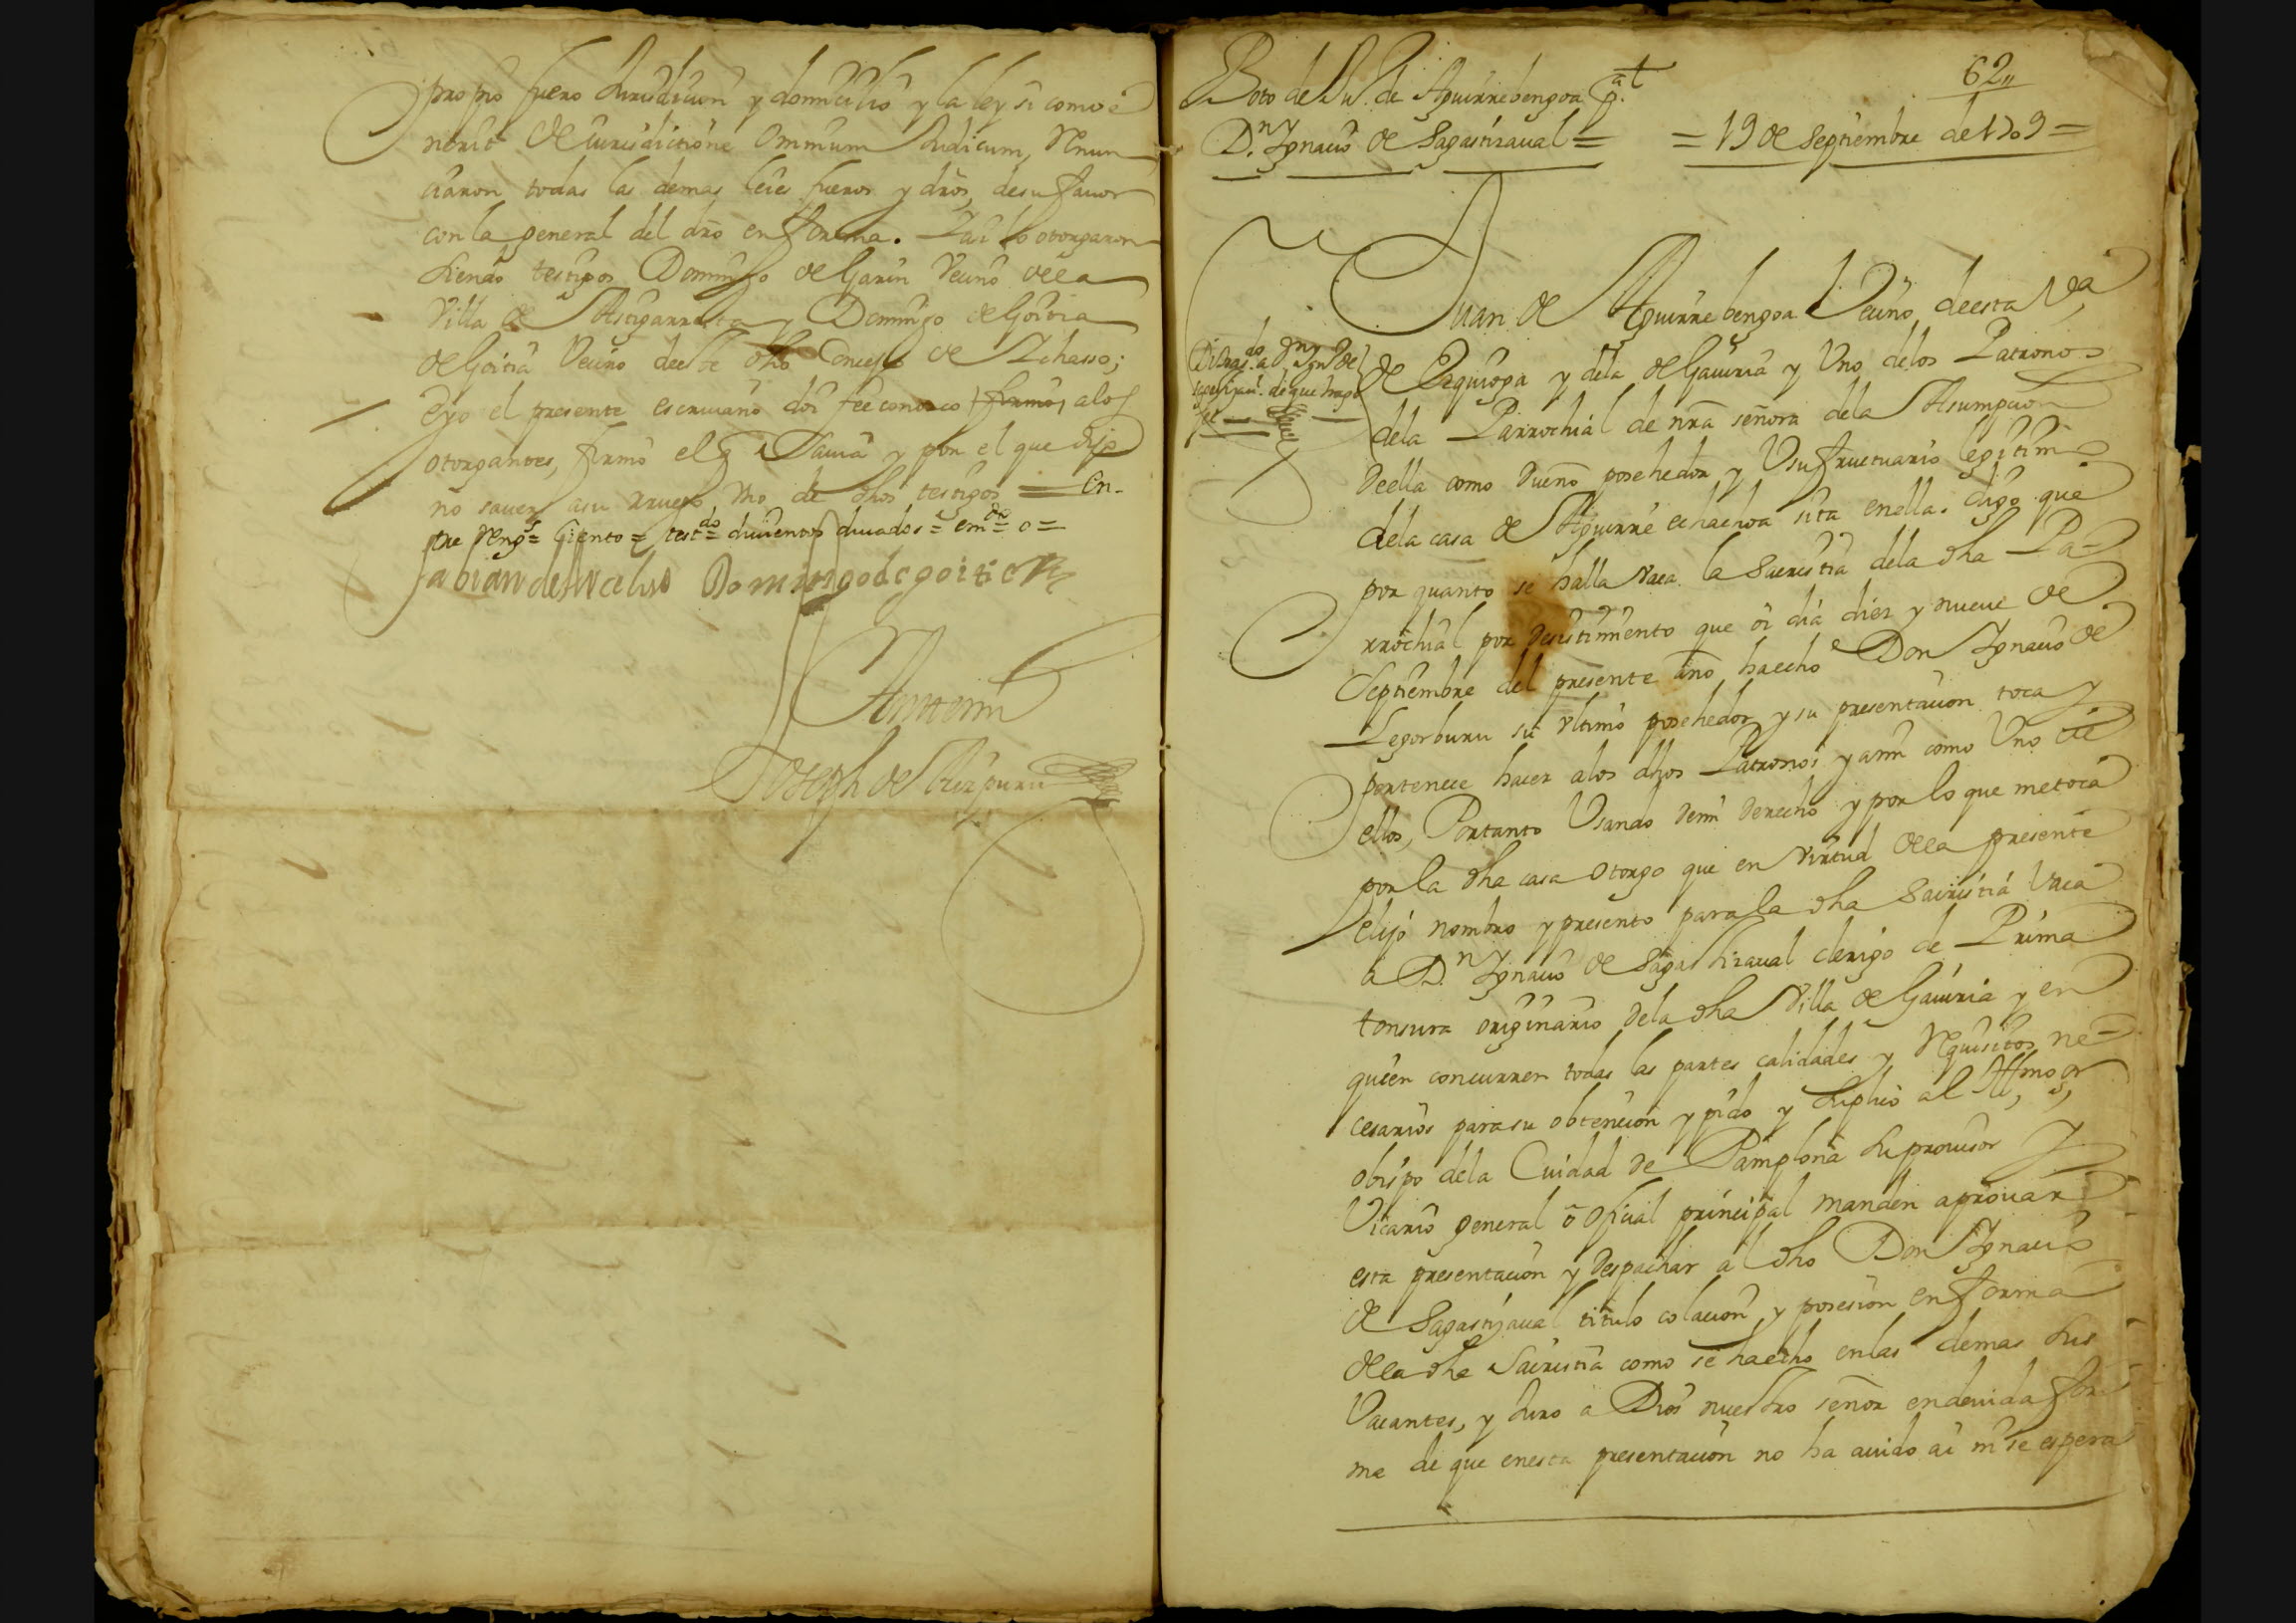 propio fuero Jurisdicion y domicilio y la ley si combe
nerit de Jurisdictione omnium Judicum, Renun
ciaron todas las demas leies fueros y dros, desu fauor
con la general del dro en forma. Y asi lo otorgaron
siendo testigos Domingo de Garin Vecino dela
Villa de Astigarreta y Domingo de Goitia
de Goitia Vecino deeste dho Concejo de Ichasso;
Eyo el presente escriuano doi fee conozco firmo, alos
otorgantes, firmo el q sauia y por el que dijo
no sauer asu ruego Uno de dhos testigos = En-
tre Rengs= Ciento= testdo= duientos ducados= emdo= o=
Fabian de Domingo de goitia
Antemi
Joseph de Aizpuru
62
Boto de Ju. de Aguirrebengoa pat
Dn. Ygnacio de Sagastizaual =
= 19 de Septiembre de 1709 =
Juan de Aguirrebengoa Vecino deesta Va,
de Ezquioga y dela de Gauiria y Uno delos Patronos
dela Parrochial de nra señora dela Asumpcion
deella como dueño posehedor y Usufructuario legitimo
dela casa de Aguirre echachoa sita enella. digo que
por quanto se halla vaca la Sacristia dela dha Pa-
rrochial por desistimiento que oi dia diez y nueue de
Septiembre del presente año haecho Don Ygnacio de
Legorburu su vltimo posehedor y su presentacion toca y
pertenece hacer alos dhos Patronos y ami como Uno de
ellos, Portanto Usando demi derecho y por lo que metoca
por la dha casa otorgo que en virtud dela presente
elijo nombro y presento para la dha Sacristia Vaca
a Dn. Ygnacio de Sagastizaual clerigo de Prima
tonsura originario dela dha Villa de Gauiria y en
quien concurren todas las partes calidades y Requisitos ne-
cesarios para su obtencion y pido y suplico al Illmo, sr,
obispo dela Cuidad de Pamplona su prouisor y
Vicario general o oficial principal manden aprouar
esta presentacion y despachar al dho Don Ygnacio
de Sagastizaual titulo colacion y posesion en forma
dela dha Sacristia como se haecho enlas demas sus
Vacantes, y Juro a Dios nuestro señor endeuida for
ma de que enesta presentacion no ha auido ai ni se espera